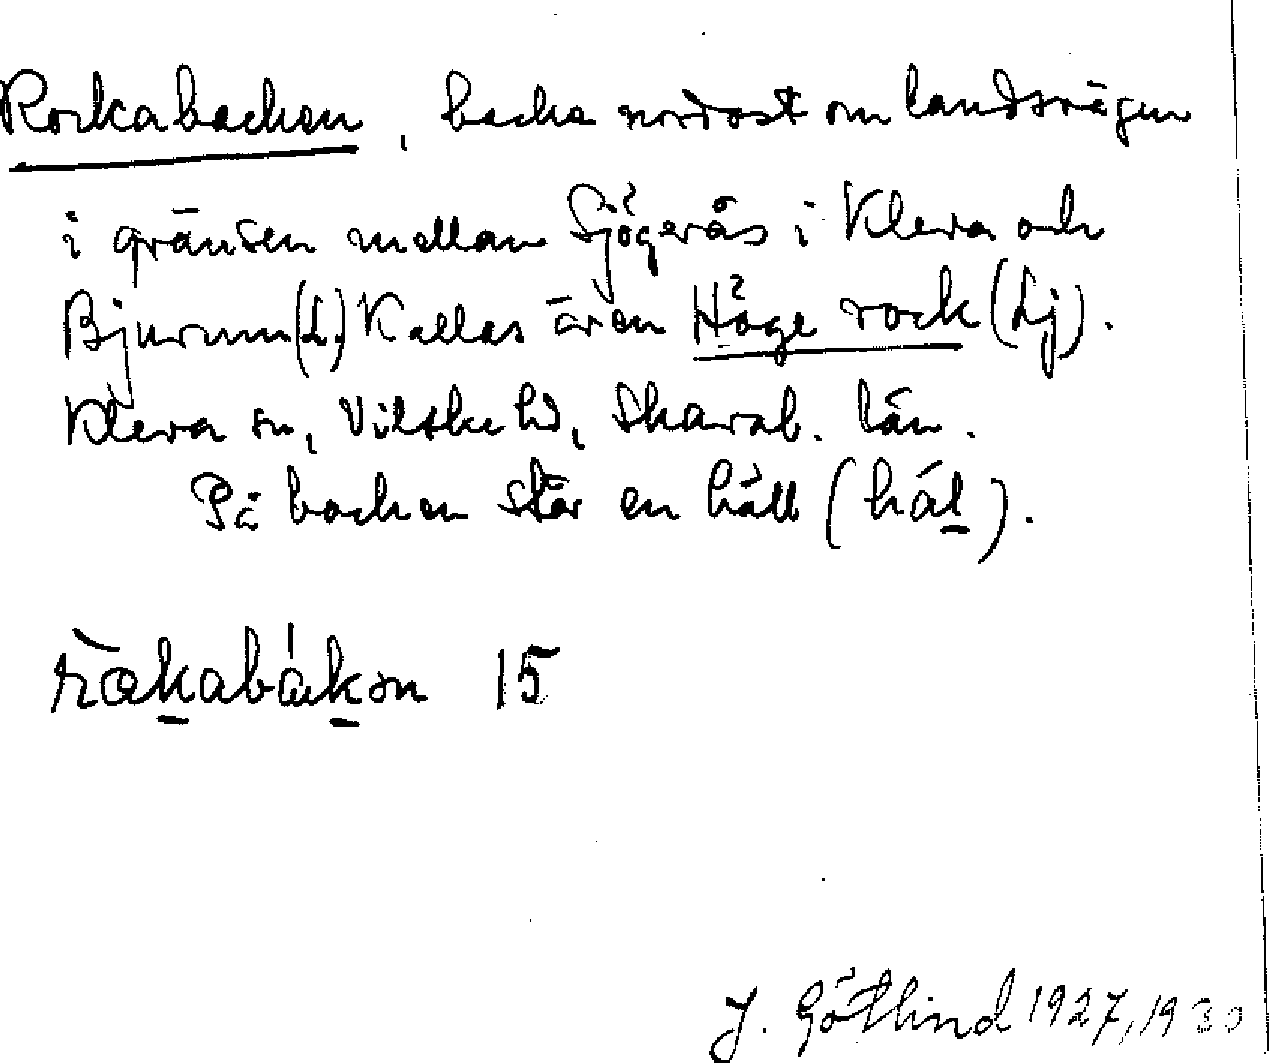 Rockabacken, backe nordost om landsvägen
i gränsen mellan Sjögerås i Kleva och
Bjurum (L.) Kallas även Höge rock (Lj).
Kleva sn, Vilske hd, Skarab. län.
På backen står en häll (hál).
ràkabákən 15
J. Götlind 1927, 1930